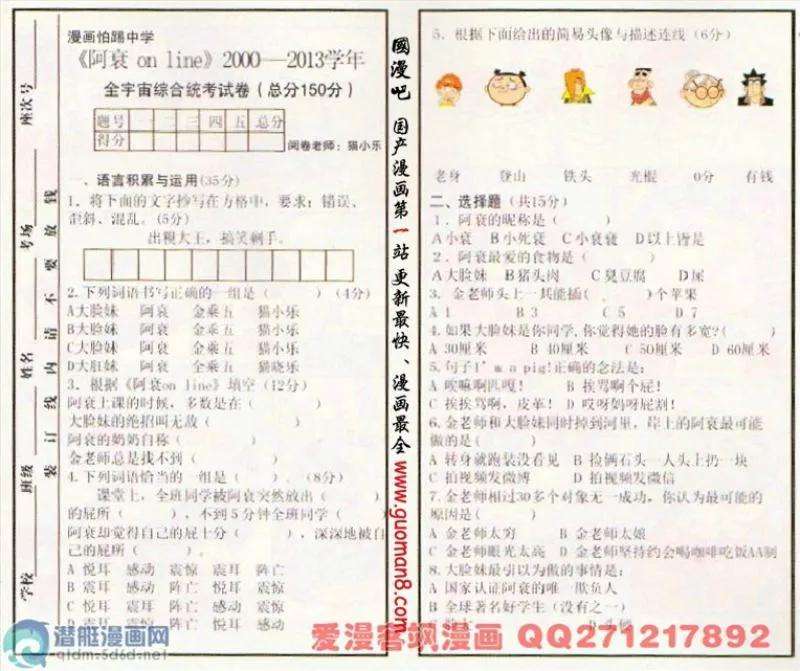 漫画怕踢中学
《阿衰 on line》2000—2013学年
全宇宙综合统考试卷（总分150分）
题号 一 二 三 四 五 总分
得分
阅卷老师：猫小乐
一、语言积累与运用(35分)
1．将下面的文字抄写在方格中，要求：错误、
歪斜、混乱。(5分)
出糗大王，搞笑剩手。
2.下列词语书写正确的一组是（ ）(4分)
A大脸妹 阿衰 金乘五 猫小乐
B大脸妹 阿衰 金乘五 猫小乐
C大脸妹 阿衰 金乘五 猫小乐
D大肚妹 阿衰 金乘五 猫晓乐
3．根据《阿衰on line》填空(12分)
阿衰上课的时候，多数是在（ ）
大脸妹的绝招叫无敌（ ）
阿衰的奶奶自称（ ）
金老师总是找不到（ ）
4.下列词语恰当的一组是（ ）。(8分)
课堂上，全班同学被阿衰突然放出（ ）
的屁所（ ），不到5分钟全班同学（ ）
阿衰却觉得自己的屁十分（ ），深深地被自
己的屁所（ ）。
A 悦耳 感动 震惊 震耳 阵亡
B 震耳 感动 阵亡 悦耳 震惊
C 悦耳 震惊 阵亡 震耳 感动
D 震耳 震惊 阵亡 悦耳 感动
学校 班级 姓名 考场 座次号
装 订 线 内 请 不 要 放 钱
國漫吧 国产漫画第一站 更新最快、漫画最全 www.guoman8.com
5．根据下面给出的简易头像与描述连线（6分）
老身 登山 铁头 光棍 0分 有钱
二、选择题（共15分）
1．阿衰的昵称是（ ）
A小衰 B小死衰 C小衰衰 D以上皆是
2．阿衰最爱的食物是（ ）
A大脸妹 B猪头肉 C臭豆腐 D屎
3．金老师头上一共能插（ ）个苹果
A 1 B 3 C 5 D 7
4.如果大脸妹是你同学,你觉得她的脸有多宽?( )
A 30厘米 B 40厘米 C 50厘米 D 60厘米
5.句子I’m a pig!正确的念法是：
A 唉嘛啊匹嘎！ B 挨骂啊个屁！
C 挨挨骂啊，皮革！ D 哎呀妈呀屁割！
6.金老师和大脸妹同时掉到河里，岸上的阿衰最可能
做的是（ ）
A 转身就跑装没看见 B 捡俩石头一人头上扔一块
C 拍视频发微博 D 拍视频发微信
7.金老师相过30多个对象无一成功，你认为最可能的
原因是（ ）
A 金老师太穷 B 金老师太娘
C 金老师眼光太高 D 金老师坚持约会喝咖啡吃饭AA制
8.大脸妹最引以为傲的事情是：
A 国家认证阿衰的唯一欺负人
B 全球著名好学生（没有之一）
潜艇漫画网
qtdm.5d6d.net
爱漫客飒漫画 QQ271217892